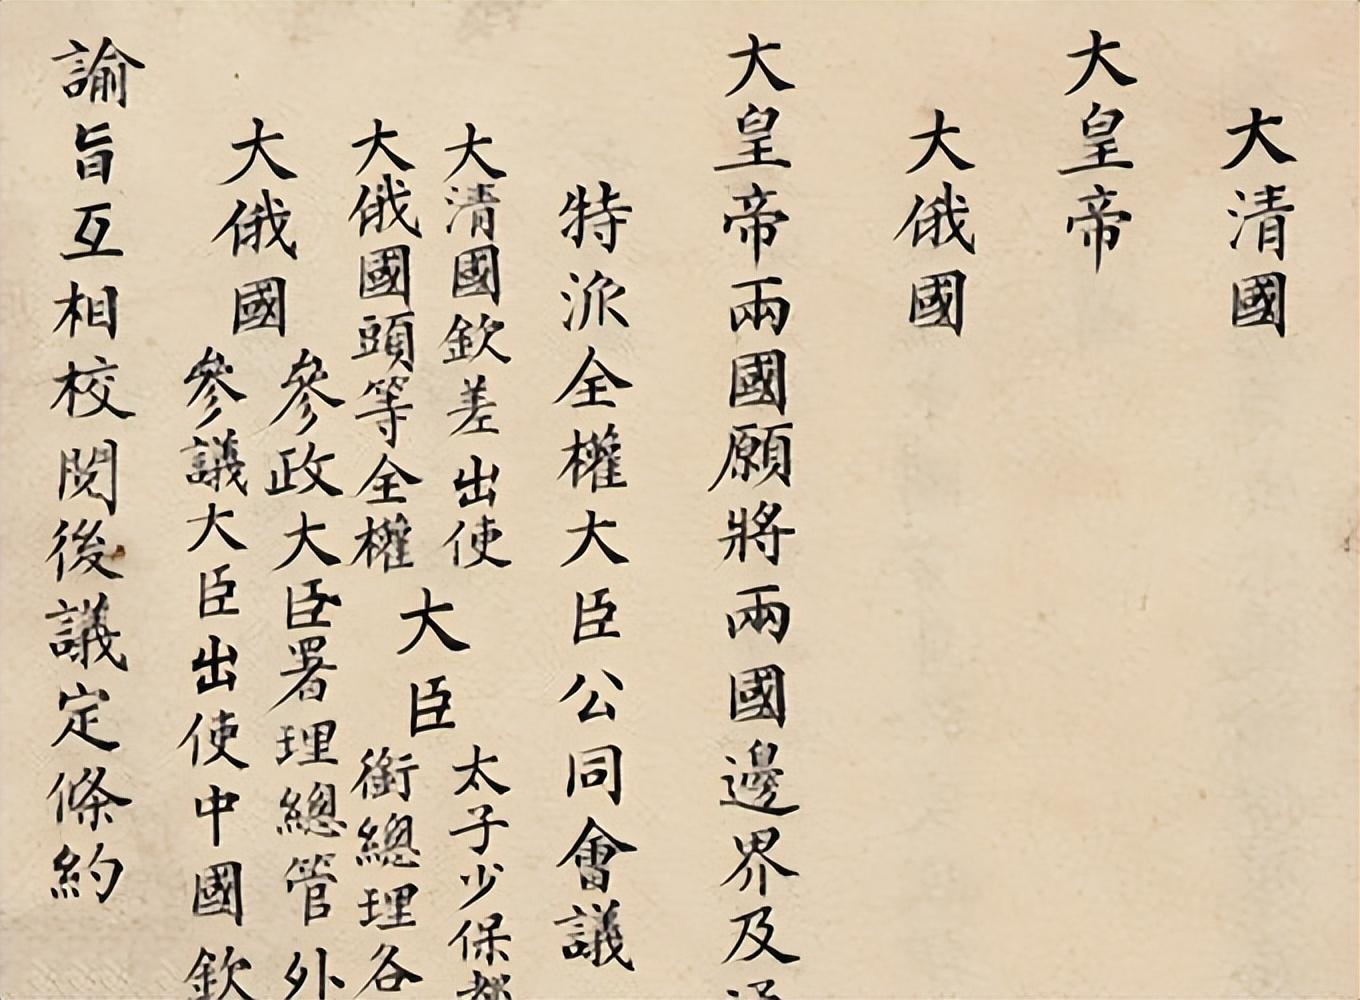 大清國
大皇帝
大俄國
大皇帝兩國願將兩國邊界及通
特派全權大臣公同會議
大清國欽差出使
大俄國頭等全權
大臣
太子少保都
銜總理各
大俄國
參政大臣署理總管外
參議大臣出使中國欽
諭旨互相校閱後議定條約